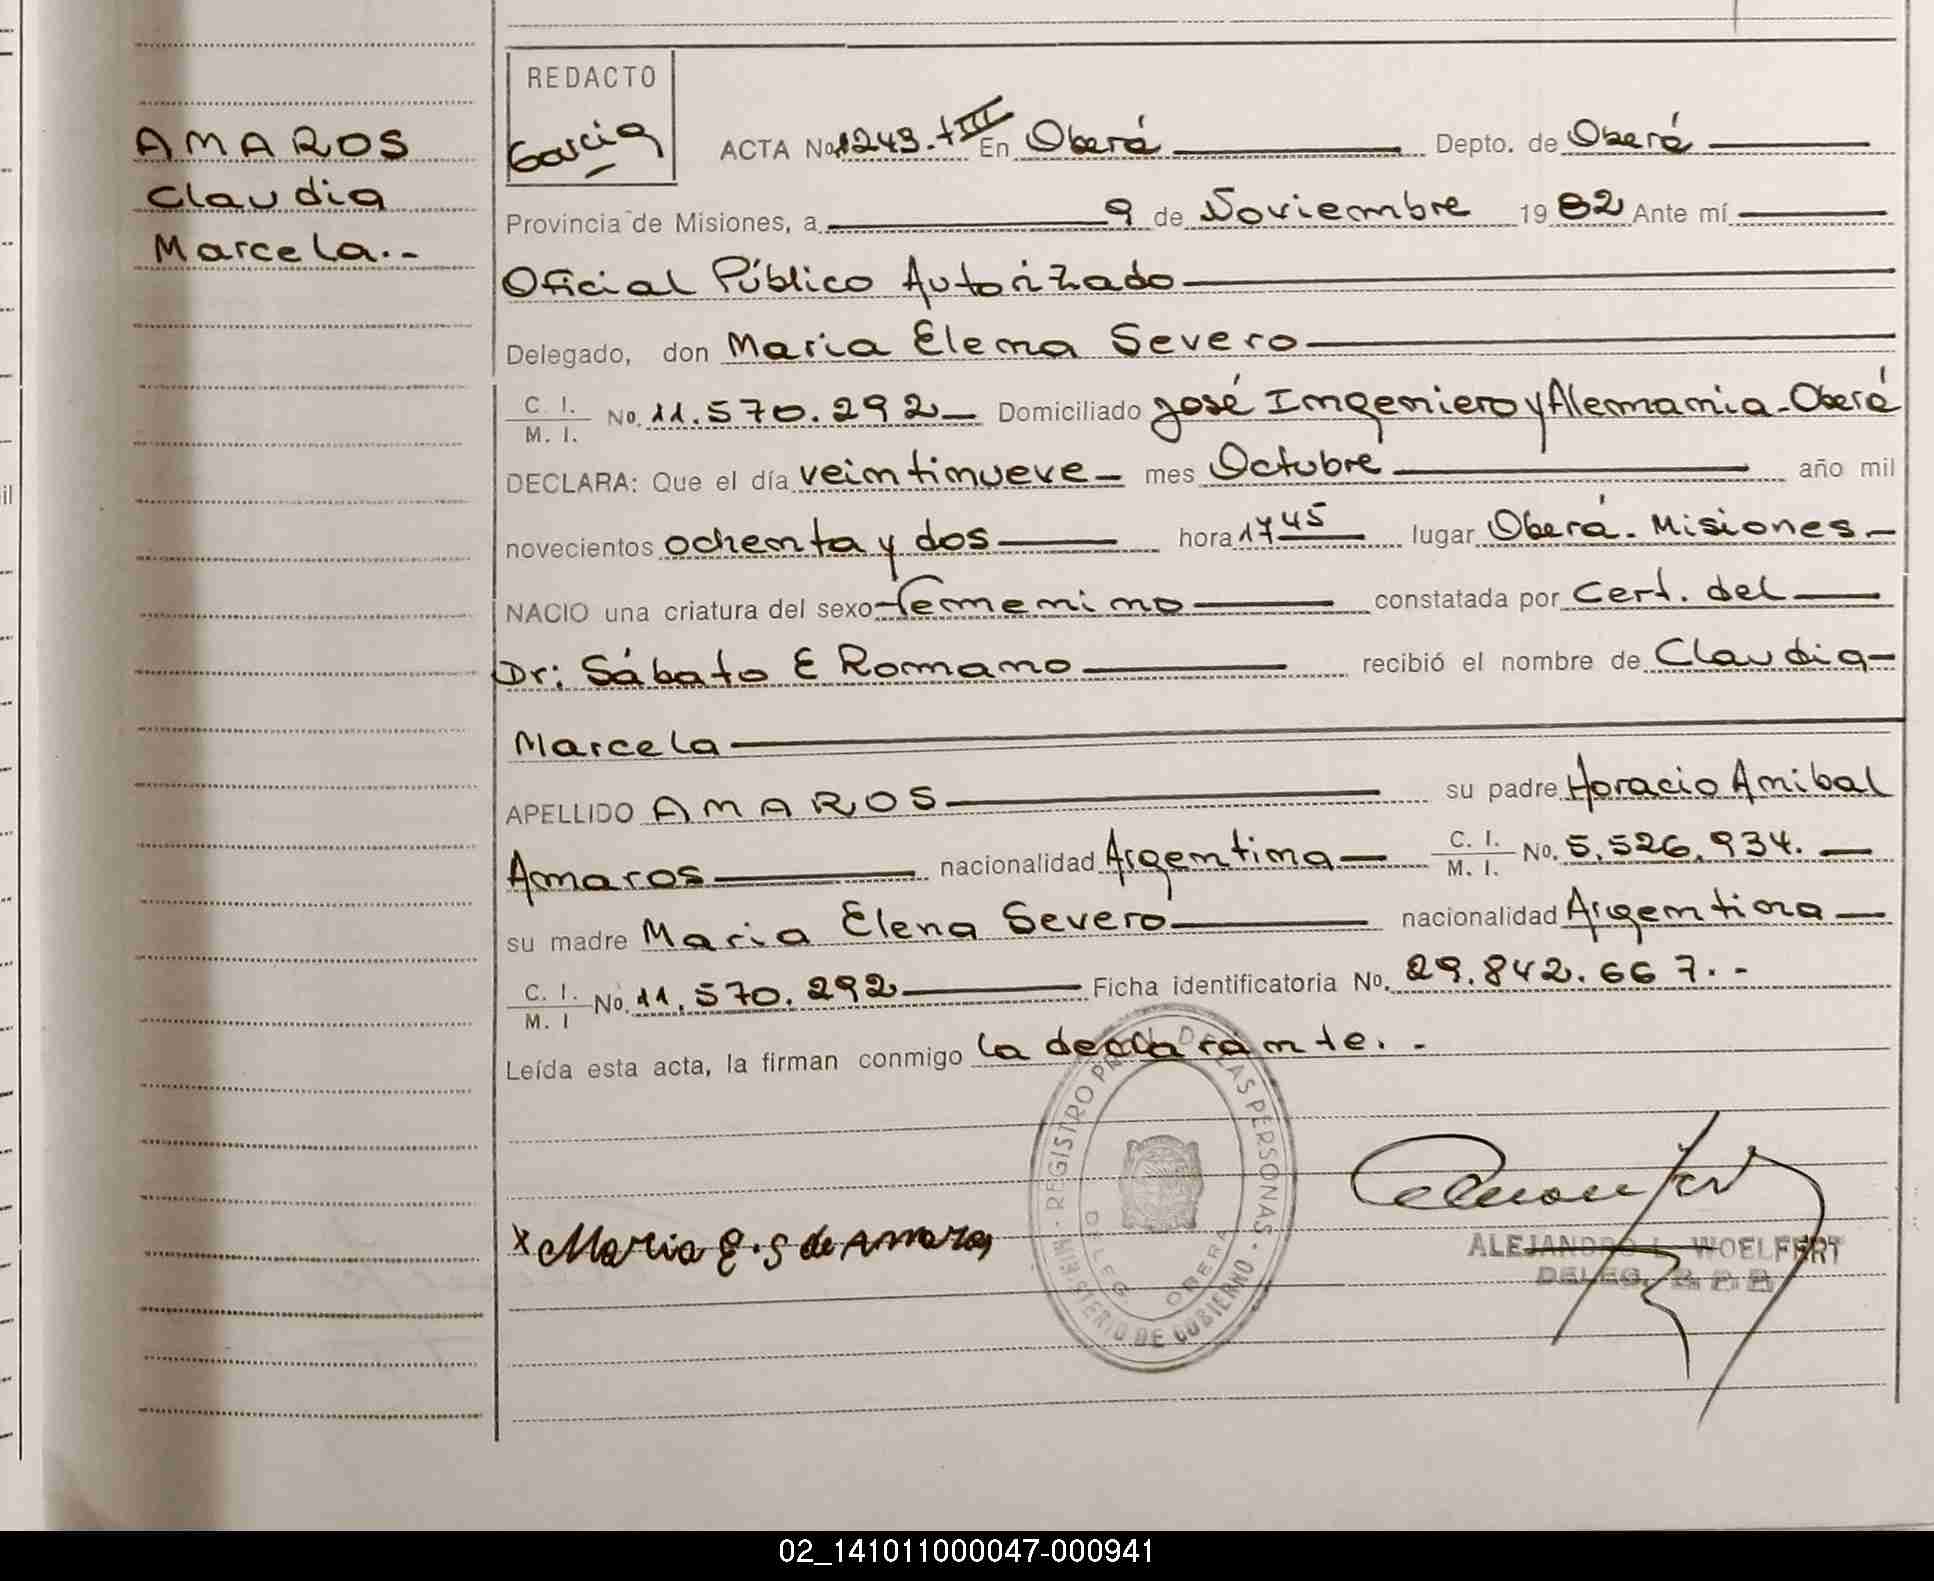 REDACTO
Garcia
AMAROS
Claudia
Marcela.-
ACTA No. 1249. tIII En Oberá Depto. de Oberá
Provincia de Misiones, a 9 de Noviembre 1982 Ante mí
Oficial Público Autorizado
Delegado, don Maria Elena Severo
C. I. / M. I. No. 11.570.292 Domiciliado José Ingeniero y Alemania - Oberá
DECLARA: Que el día veintinueve mes Octubre año mil
novecientos ochenta y dos hora 17 45 lugar Oberá - Misiones
NACIO una criatura del sexo Femenino constatada por Cert. del
Dr: Sábato E Romano recibió el nombre de Claudia
Marcela
APELLIDO AMAROS su padre Horacio Anibal
Amaros nacionalidad Argentina C. I. / M. I. No. 5.526.934.
su madre Maria Elena Severo nacionalidad Argentina
C. I. / M. I No. 11.570.292 Ficha identificatoria No. 29.842.667.-
Leída esta acta, la firman conmigo la declarante.-
REGISTRO PRAL DE LAS PERSONAS - MINISTERIO DE GOBIERNO
DELEG OBERA
x Maria E. S de Amaros
ALEJANDRO L. WOELFERT
DELEG. R. P. P.
02_141011000047-000941